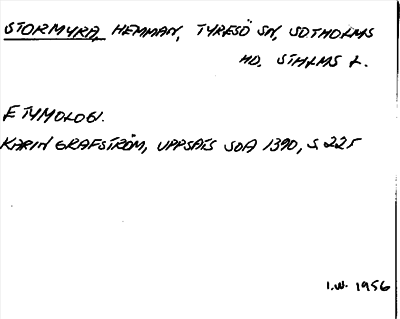 STORMYRA, HEMMAN, TYRESÖ SN, SOTHOLMS
HD, STHLMS L.
ETYMOLOGI.
KARIN GRAFSTRÖM, UPPSATS SOA 1390, S. 225
I.W. 1956